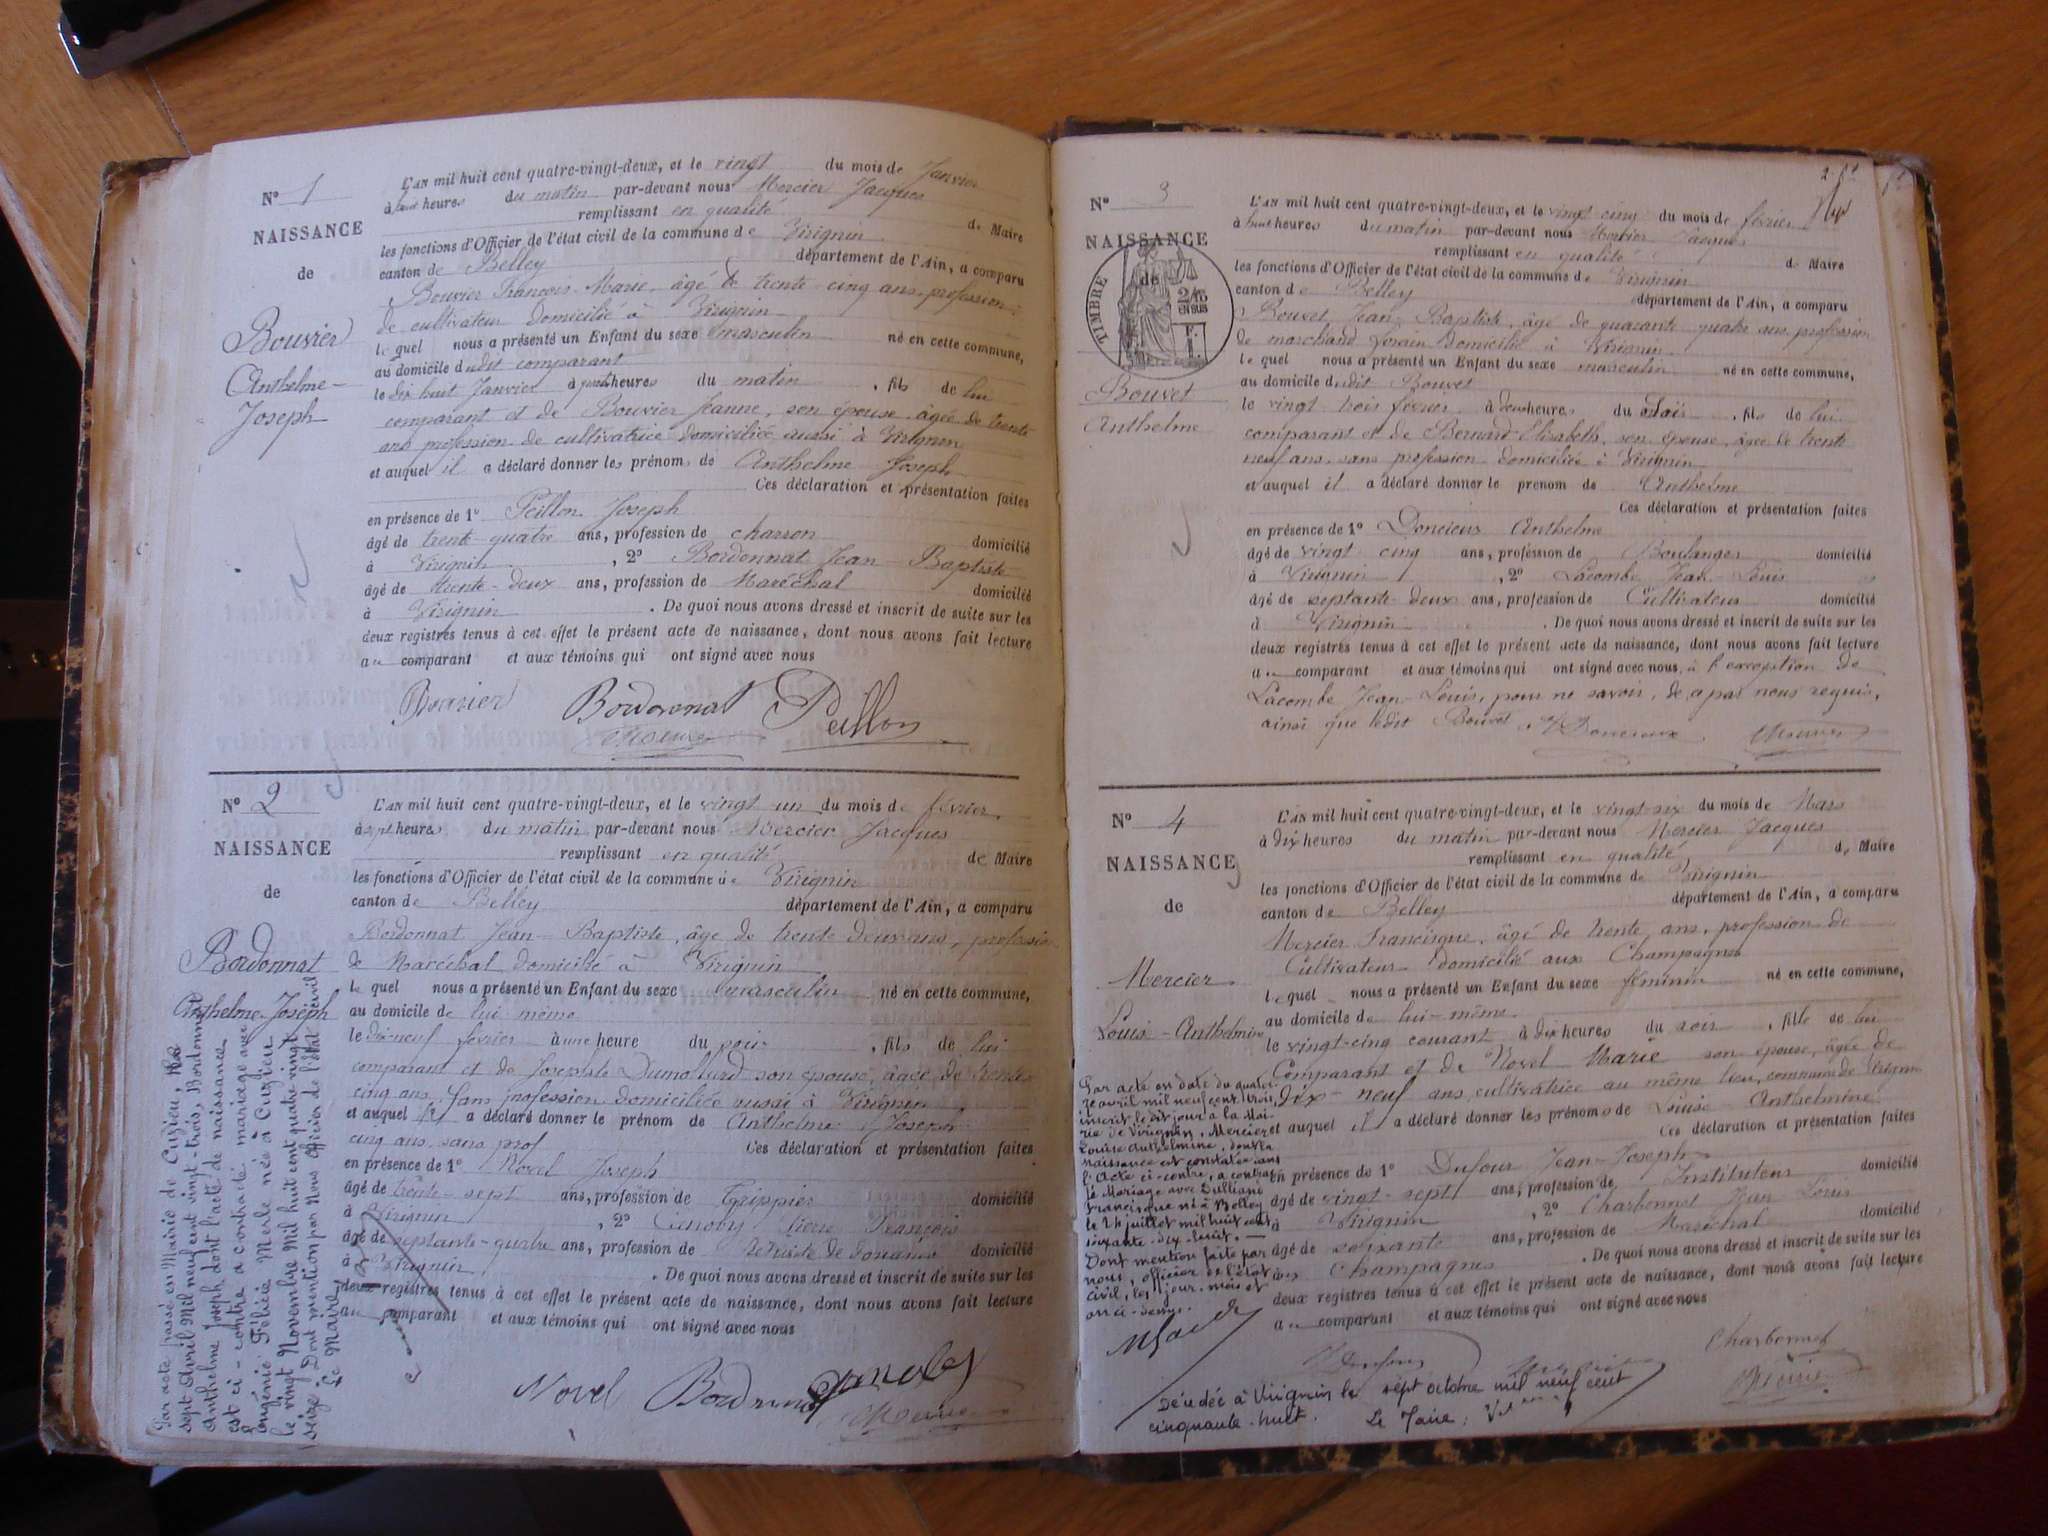 N° 1
NAISSANCE
de
Bouvier
Anthelme-
Joseph
L'AN mil huit cent quatre-vingt-deux, et le vingt du mois de Janvier
à heures du matin par-devant nous Mercier Jacques
remplissant en qualité de Maire
les fonctions d'Officier de l'état civil de la commune de Virignin
canton de Belley département de l'Ain, a comparu
Bouvier François-Marie, âgé de trente-cinq ans, profession
de cultivateur domicilié à Virignin
lequel nous a présenté un Enfant du sexe masculin né en cette commune,
au domicile dudit comparant
le dix huit Janvier à heures du matin, fils de lui
comparant et de Bouvier Jeanne, son épouse, âgée de trente
ans profession de cultivatrice domiciliée aussi à Virignin
et auquel il a déclaré donner les prénoms de Anthelme Joseph
Ces déclaration et présentation faites
en présence de 1° Peillon Joseph
âgé de trente-quatre ans, profession de charron domicilié
à Virignin, 2° Bordonnat Jean-Baptiste
âgé de trente-deux ans, profession de Maréchal domicilié
à Virignin. De quoi nous avons dressé et inscrit de suite sur les
deux registres tenus à cet effet le présent acte de naissance, dont nous avons fait lecture
au comparant et aux témoins qui ont signé avec nous
Bouvier Bordonnat Peillon
Mercier
N° 2
NAISSANCE
de
Bordonnat
Anthelme-Joseph
L'AN mil huit cent quatre-vingt-deux, et le vingt un du mois de février
à sept heures du matin par-devant nous Mercier Jacques
remplissant en qualité de Maire
les fonctions d'Officier de l'état civil de la commune de Virignin
canton de Belley département de l'Ain, a comparu
Bordonnat Jean-Baptiste, âgé de trente deux ans, profession
de Maréchal domicilié à Virignin
lequel nous a présenté un Enfant du sexe masculin né en cette commune,
au domicile de lui même
le dix-neuf février à une heure du soir, fils de lui
comparant et de Josephte Dumollard son épouse, âgée de trente
cinq ans, sans profession domiciliée aussi à Virignin
et auquel il a déclaré donner le prénom de Anthelme Joseph
cinq ans, sans prof Ces déclaration et présentation faites
en présence de 1° Novel Joseph
âgé de trente-sept ans, profession de Grippier domicilié
à Virignin, 2° François
âgé de septante-quatre ans, profession de retraité de Douane domicilié
à Virignin. De quoi nous avons dressé et inscrit de suite sur les
deux registres tenus à cet effet le présent acte de naissance, dont nous avons fait lecture
au comparant et aux témoins qui ont signé avec nous
Novel Bordonnat
Mercier
Par acte passé en Mairie de Cuzieu, le
sept Avril Mil neuf cent vingt-trois, Bordonnat
Anthelme Joseph dont l'acte de naissance
est ci-contre a contracté mariage avec
Eugénie Félicie Merle née à Cuzieu
le vingt Novembre Mil huit cent quatre vingt
seize. Dont mention par Nous Officier de l'état civil
Le Maire
N° 3
NAISSANCE
de
TIMBRE
2/10
EN SUS
Bouvet
Anthelme
L'AN mil huit cent quatre-vingt-deux, et le vingt cinq du mois de février
à huit heures du matin par-devant nous Mercier Jacques
remplissant en qualité de Maire
les fonctions d'Officier de l'état civil de la commune de Virignin
canton de Belley département de l'Ain, a comparu
Bouvet Jean-Baptiste, âgé de quarante quatre ans, profession
de marchand forain domicilié à Virignin
lequel nous a présenté un Enfant du sexe masculin né en cette commune,
au domicile dudit Bouvet
le vingt trois février à deux heures du soir, fils de lui
comparant et de Bernard Elisabeth, son épouse, âgée de trente
neuf ans, sans profession domiciliée à Virignin
et auquel il a déclaré donner le prénom de Anthelme
Ces déclaration et présentation faites
en présence de 1° Doncieux Anthelme
âgé de vingt cinq ans, profession de Boulanger domicilié
à Virignin, 2° Lacombe Jean-Louis
âgé de septante-deux ans, profession de Cultivateur domicilié
à Virignin. De quoi nous avons dressé et inscrit de suite sur les
deux registres tenus à cet effet le présent acte de naissance, dont nous avons fait lecture
au comparant et aux témoins qui ont signé avec nous, à l'exception de
Lacombe Jean-Louis, pour ne savoir, de ce par nous requis,
ainsi que ledit Bouvet. Doncieux Mercier
N° 4
NAISSANCE
de
Mercier
Louise-Anthelmine
L'AN mil huit cent quatre-vingt-deux, et le vingt-six du mois de Mars
à dix heures du matin par-devant nous Mercier Jacques
remplissant en qualité de Maire
les fonctions d'Officier de l'état civil de la commune de Virignin
canton de Belley département de l'Ain, a comparu
Mercier Francisque, âgé de trente ans, profession de
Cultivateur domicilié aux Champagnes
lequel nous a présenté un Enfant du sexe féminin né en cette commune,
au domicile de lui-même
le vingt-cinq courant à dix heures du soir, fille de lui
Comparant et de Novel Marie son épouse, âgée de
dix-neuf ans, cultivatrice au même lieu, commune de Virignin
et auquel il a déclaré donner les prénoms de Louise Anthelmine
Ces déclaration et présentation faites
en présence de 1° Dufour Jean-Joseph
âgé de vingt-sept ans, profession de Instituteur domicilié
à Virignin, 2° Charbonnet Jean Louis
âgé de soixante ans, profession de Maréchal domicilié
aux Champagnes. De quoi nous avons dressé et inscrit de suite sur les
deux registres tenus à cet effet le présent acte de naissance, dont nous avons fait lecture
au comparant et aux témoins qui ont signé avec nous
Charbonnet
Dufour Mercier Mercier
Par acte en date du quator-
ze avril mil neuf cent trois,
inscrit le dit jour à la Mai-
rie de Virignin, Mercier
Louise Anthelmine, dont la
naissance est constatée dans
l'Acte ci-contre, a contrac-
té Mariage avec Julliand
Francisque né à Belley
le 24 juillet mil huit cent
soixante-dix-huit.
Dont mention faite par
nous, officier de l'état
civil, les jour, mois et
an ci-dessus.
Décédée à Virignin le sept octobre mil neuf cent
cinquante-huit. Le Maire: